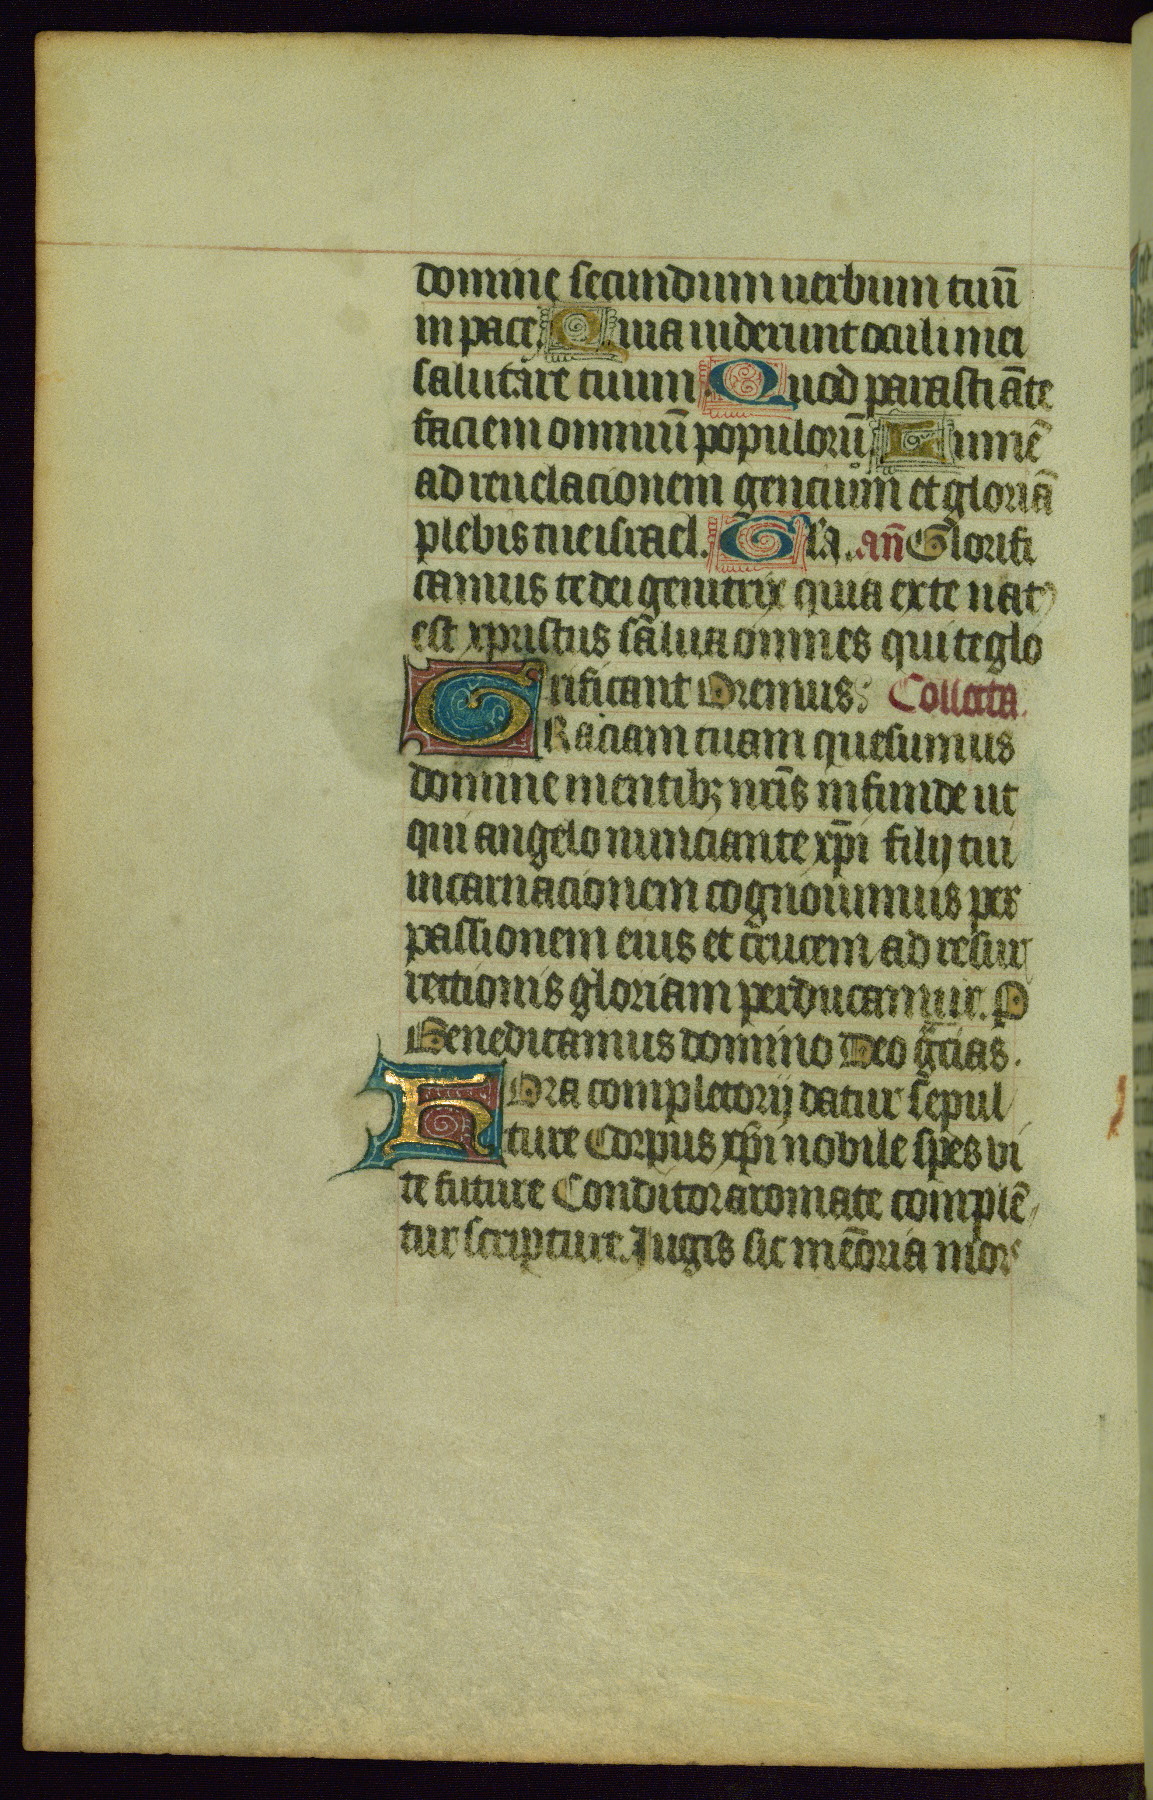 domine secundum uerbum tuū
in pace. Quia uiderunt oculi mei
salutare tuum. Quod parasti āte
faciem omniū populorū. Lumē
ad reuelacionem gencium et gloriā
plebis tue israel. Gła. an̄ Glorifi
camus te dei genitrix quia ex te nat
est xpristus salua omnes qui te glo
rificant Oremus. Collecta.
GRaciam tuam quesumus
domine mentibꝫ nr̄is infunde ut
qui angelo nunciante xp̄i filij tui
incarnacionem cognouimus per
passionem eius et crucem ad resur
rectionis gloriam perducamur. P
Benedicamus domino Deo gr̄cias.
HOra completorij datur sepul
ture Corpus xp̄i nobile spes vi
te future Conditor aromate complē
tur scripture. Iugis sic mēoria mor